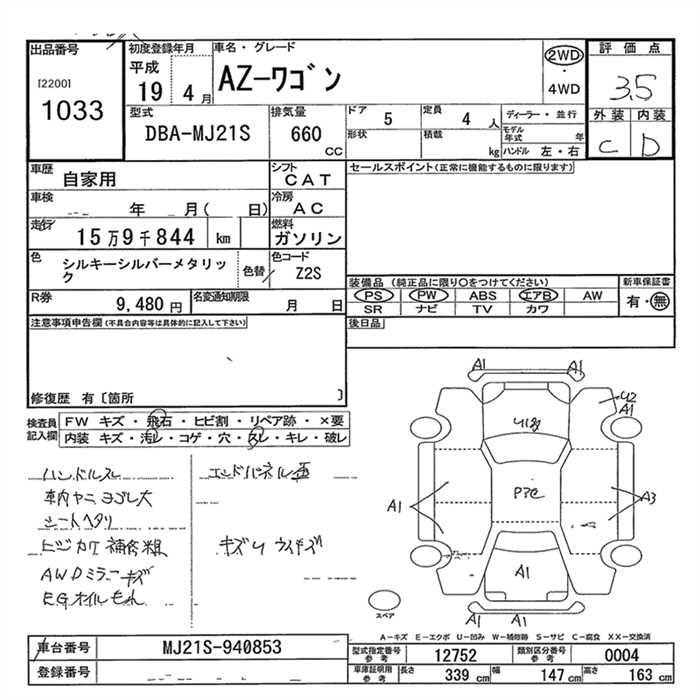 出品番号
[2200]
1033
初度登録年月
平成
19 4 月
車名・グレード
AZ-ワゴン
2WD
・
4WD
評価点
3.5
外装 内装
C D
型式
DBA-MJ21S
排気量
660
CC
ドア
5
定員
4 人
形状
積載
kg
ディーラー・並行
モデル年式 年
ハンドル 左・右
車歴
自家用
シフト
CAT
車検
年 月( 日)
冷房
AC
走行
15万9千844 km
燃料
ガソリン
色
シルキーシルバーメタリック
色替
色コード
Z2S
R券
9,480 円
名変通知期限
月 日
セールスポイント(正常に機能するものに限ります)
装備品 (純正品に限り○をつけてください)
PS PW ABS エアB AW
SR ナビ TV カワ
新車保証書
有・無
後日品
注意事項申告欄(不具合内容等は具体的に記入して下さい)
修復歴 有〔箇所 〕
検査員記入欄
FW キズ・飛石・ヒビ割・リペア跡・×要
内装 キズ・汚レ・コゲ・穴・スレ・キレ・破レ
ハンドルスレ
車内ヤニ ヨゴレ大
シートヘタリ
ヒジカケ補修跡
AWDミラーキズ
EGオイルもれ
エンドパネル歪
キズU ウスキズ
A1 A1
U2
A1
A1
A3
A1
A1 A1
スペア
A-キズ E-エクボ U-凹み W-補修跡 S-サビ C-腐食 XX-交換済
車台番号
MJ21S-940853
登録番号
型式指定番号
参考
12752
類別区分番号
参考
0004
車庫証明用
参考
長さ
339 cm
幅
147 cm
高さ
163 cm